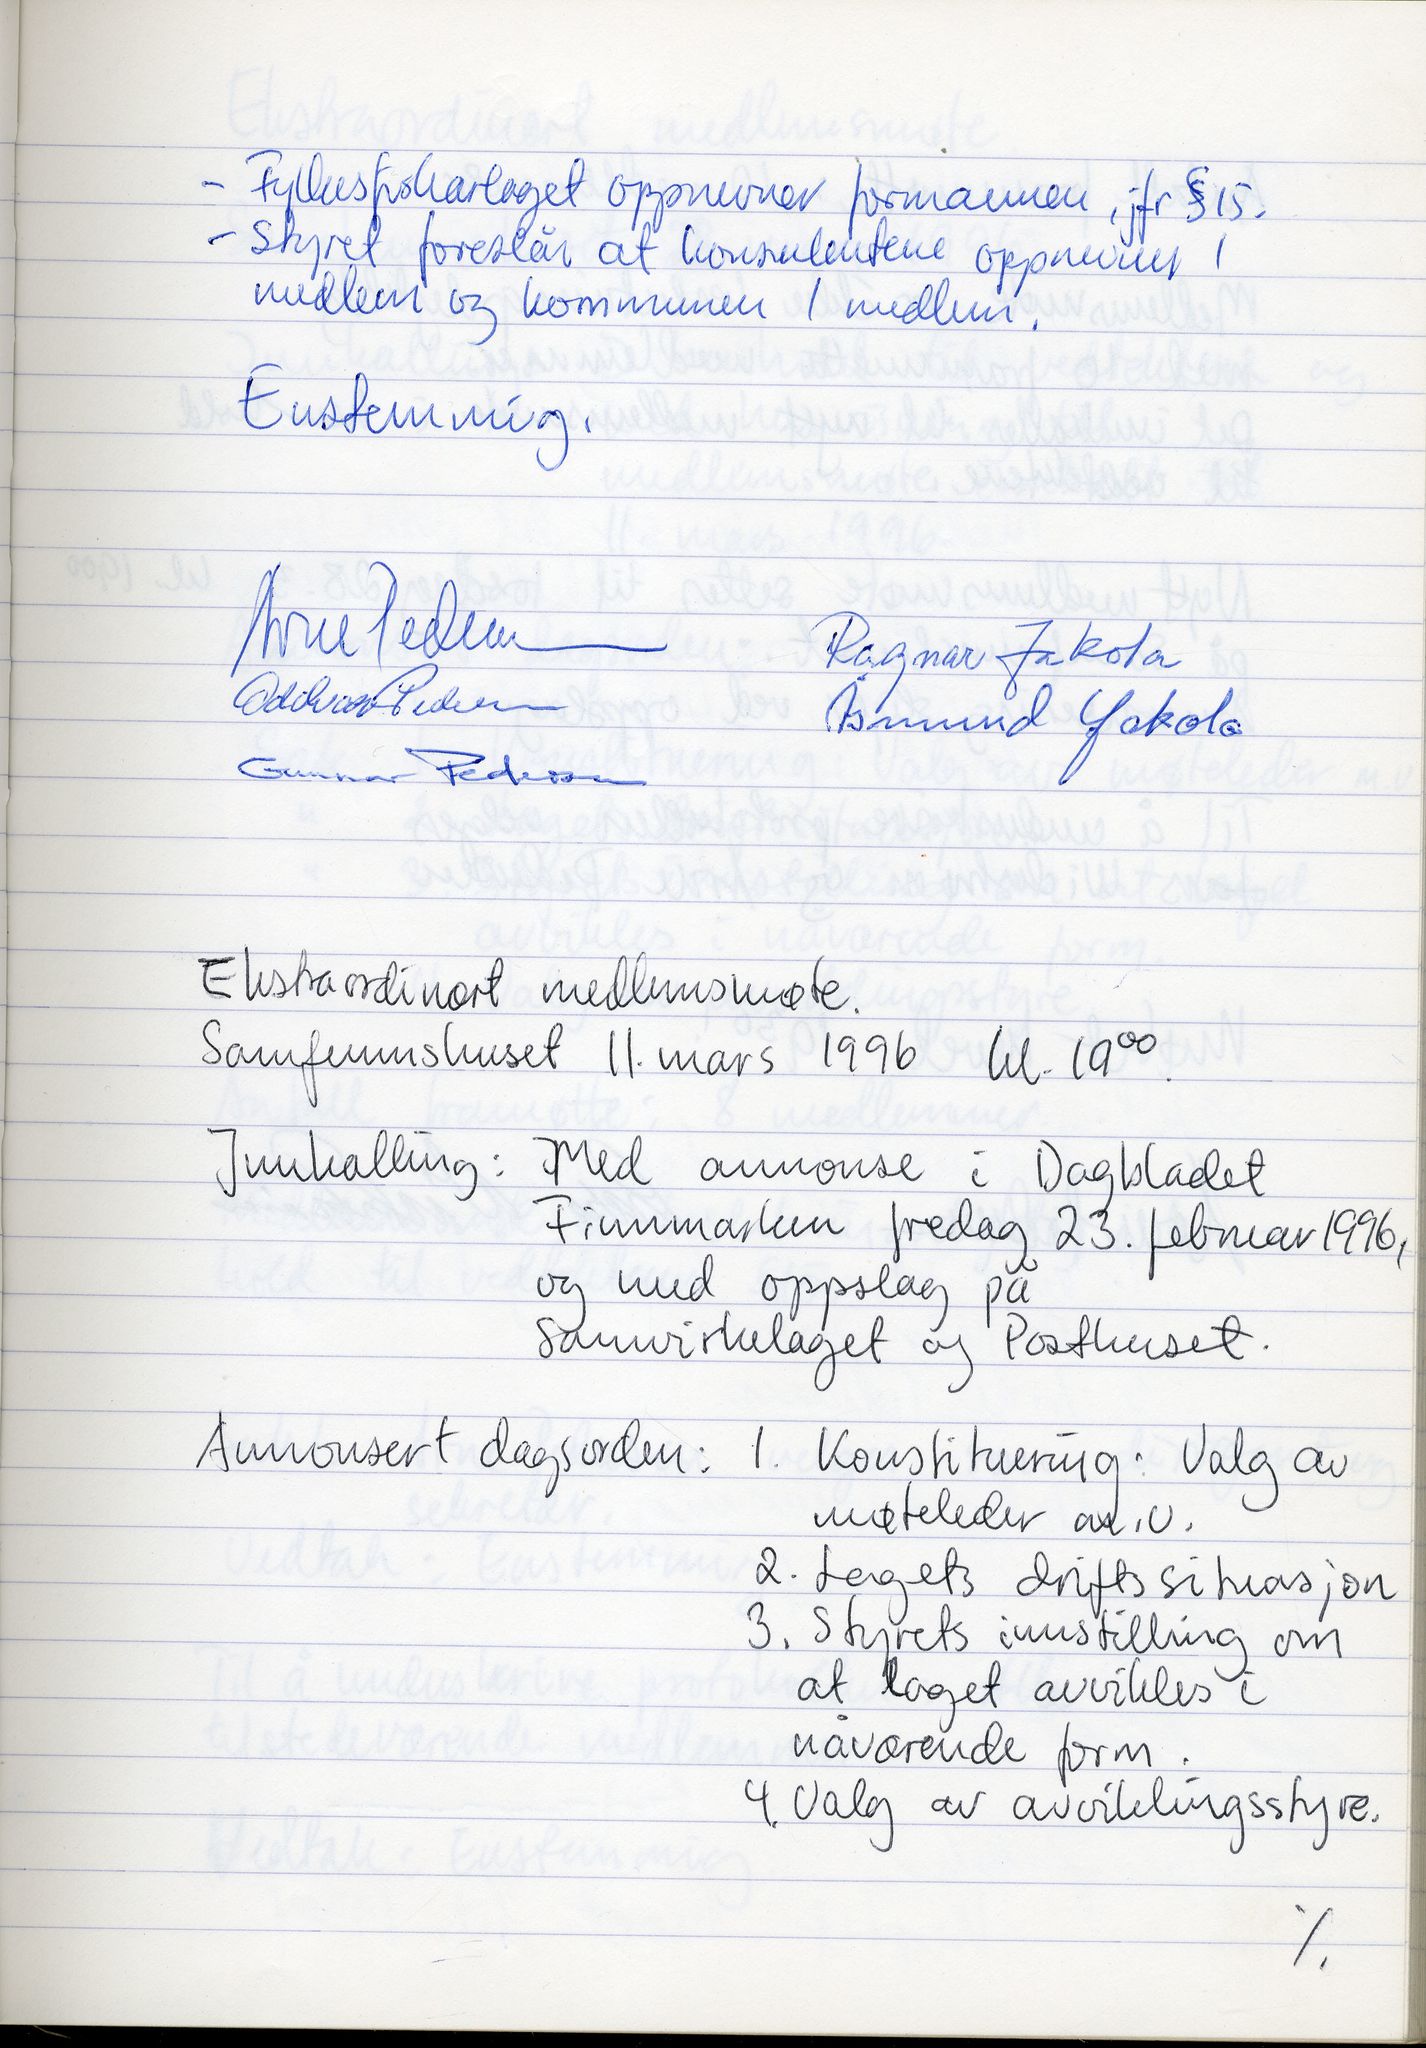 - Fylkesfiskarlaget oppnevner formannen, jfr § 15.
- Styret foreslår at konsulentene oppnevner 1
medlem og kommunen 1 medlem.
Enstemmig.
Arne Pedersen
Ragnar Jakola
Oddvar Pedersen
Åsmund Jakola
Gunnar Pedersen
Ekstraordinært medlemsmøte.
Samfunnshuset 11. mars 1996 kl. 19⁰⁰.
Innkalling: Med annonse i Dagbladet
Finnmarken fredag 23. februar 1996,
og med oppslag på
Samvirkelaget og Posthuset.
Annonsert dagsorden: 1. Konstituering: Valg av
møteleder m.v.
2. Lagets driftssituasjon
3. Styrets innstilling om
at laget avvikles i
nåværende form.
4. Valg av avviklingsstyre.
·/.